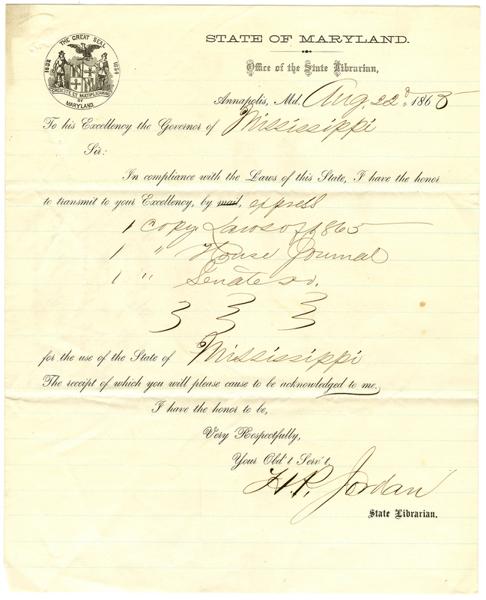 THE GREAT SEAL
1632 1854
CRESCITE ET MULTIPLICAMINI
OF
MARYLAND.
STATE OF MARYLAND.
Office of the State Librarian,
Annapolis, Md. Aug 22d. 1865
To his Excellency the Governor of Mississippi
Sir:
In compliance with the Laws of this State, I have the honor
to transmit to your Excellency, by mail, express
1 copy Laws of 1865
1 " House Journal
1 " Senate do.
for the use of the State of Mississippi
The receipt of which you will please cause to be acknowledged to me.
I have the honor to be,
Very Respectfully,
Your Obd't Serv't
H.P. Jordan
State Librarian.